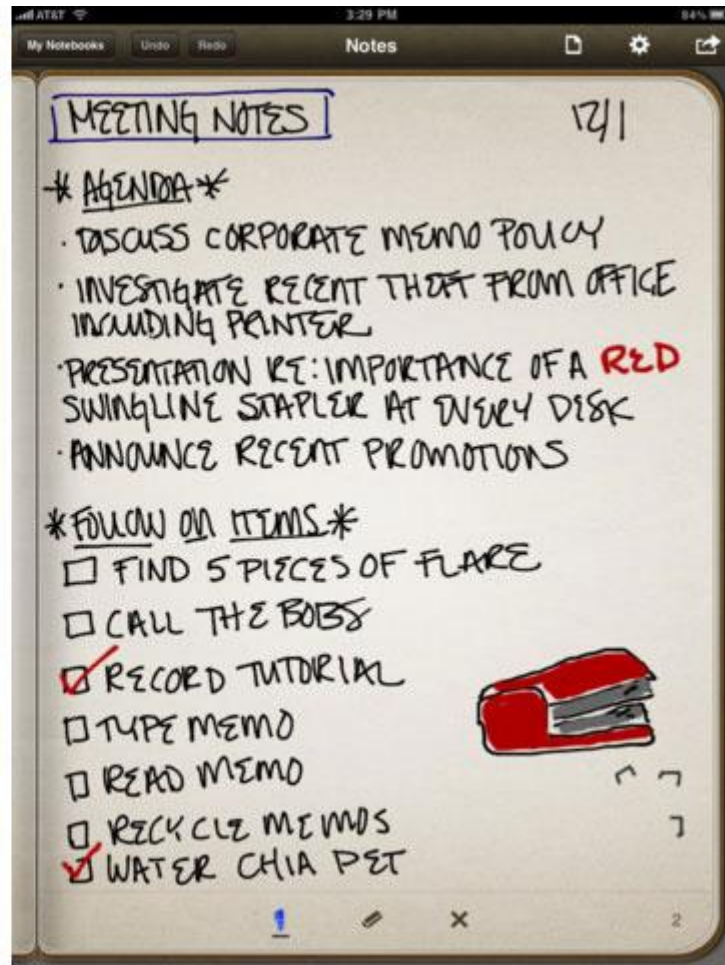 AT&T 3:29 PM 84%
My Notebooks Undo Redo Notes
MEETING NOTES 12/1
* AGENDA *
· DISCUSS CORPORATE MEMO POLICY
· INVESTIGATE RECENT THEFT FROM OFFICE
INCLUDING PRINTER
· PRESENTATION RE: IMPORTANCE OF A RED
SWINGLINE STAPLER AT EVERY DESK
· ANNOUNCE RECENT PROMOTIONS
* FOLLOW ON ITEMS *
☐ FIND 5 PIECES OF FLARE
☐ CALL THE BOBS
☑ RECORD TUTORIAL
☐ TYPE MEMO
☐ READ MEMO
☐ RECYCLE MEMOS
☑ WATER CHIA PET
2